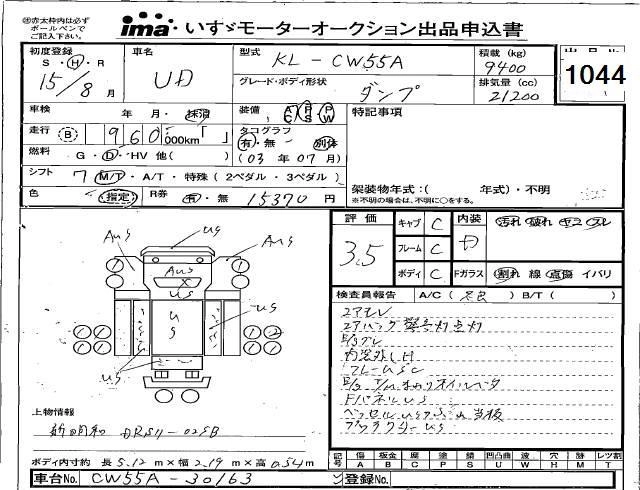 ※赤太枠内は必ず
ボールペンで
ご記入下さい。
ima いすゞモーターオークション出品申込書
初度登録
S・H・R
15/8月
車名
UD
型式
KL-CW55A
積載 (kg)
9400
グレード・ボディ形状
ダンプ
排気量 (cc)
21200
1044
車検
年 月・抹消
装備
AC PS PW
特記事項
走行
B 960,000km「 」
タコグラフ
有・無 別体
(03年07月)
燃料
G・D・HV 他( )
シフト
7 M/T・A/T・特殊(2ペダル・3ペダル)
色
(指定)
R券
有・無 15370円
架装物年式:( 年式)・不明
※不明の場合は、不明に○をする。
評価
3.5
キャブ C
フレーム C
ボディ C
内装
中
汚れ 破れ ヤニ スレ
Fガラス
割れ 線 点傷 イバリ
検査員報告 A/C( 良 ) B/T( )
エアモレ
エアバッグ警告灯点灯
内窓外し H
Fパネル us
AUS
us
AUS
AUS
us
us
us
us
上物情報
新明和 DRS11-02SB
ボディ内寸約 長 5.12 m×幅 2.19 m×高 0.54 m
記号
傷 板金 腐 塗 錆 凹凸曲 波 穴 跡 レツ割
A B C P S U W H M T
車台No. CW55A-30163
登録No.